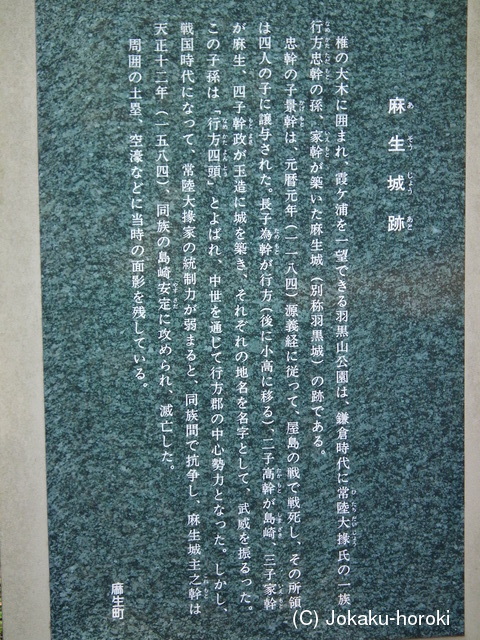 麻生城跡
あそうじょうあと
椎の大木に囲まれ、霞ケ浦を一望できる羽黒山公園は、鎌倉時代に常陸大掾氏の一族
行方忠幹の孫、家幹が築いた麻生城(別称羽黒城)の跡である。
忠幹の子景幹は、元暦元年(一一八四)源義経に従って、屋島の戦で戦死し、その所領
は四人の子に譲与された。長子為幹が行方(後に小高に移る)、二子高幹が島崎、三子家幹
が麻生、四子幹政が玉造に城を築き、それぞれの地名を名字として、武威を振るった。
この子孫は「行方四頭」とよばれ、中世を通じて行方郡の中心勢力となった。しかし、
戦国時代になって、常陸大掾家の統制力が弱まると、同族間で抗争し、麻生城主之幹は
天正十二年(一五八四)、同族の島崎安定に攻められ、滅亡した。
周囲の土塁、空濠などに当時の面影を残している。
麻生町
(C) Jokaku-horoki